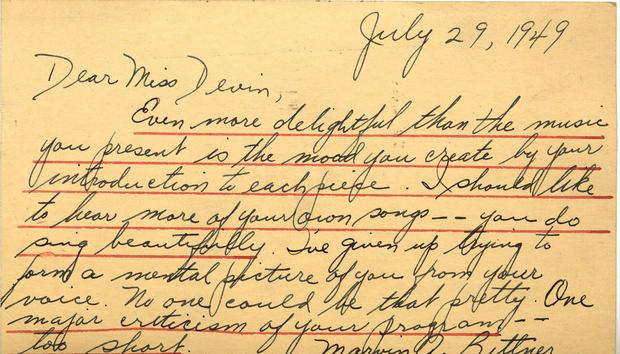 July 29, 1949
Dear Miss Devin,
Even more delightful than the music
you present is the mood you create by your
introduction to each piece. I should like
to hear more of your own songs -- you do
sing beautifully. I've given up trying to
form a mental picture of you from your
voice. No one could be that pretty. One
major criticism of your program --
too short.
Marvin